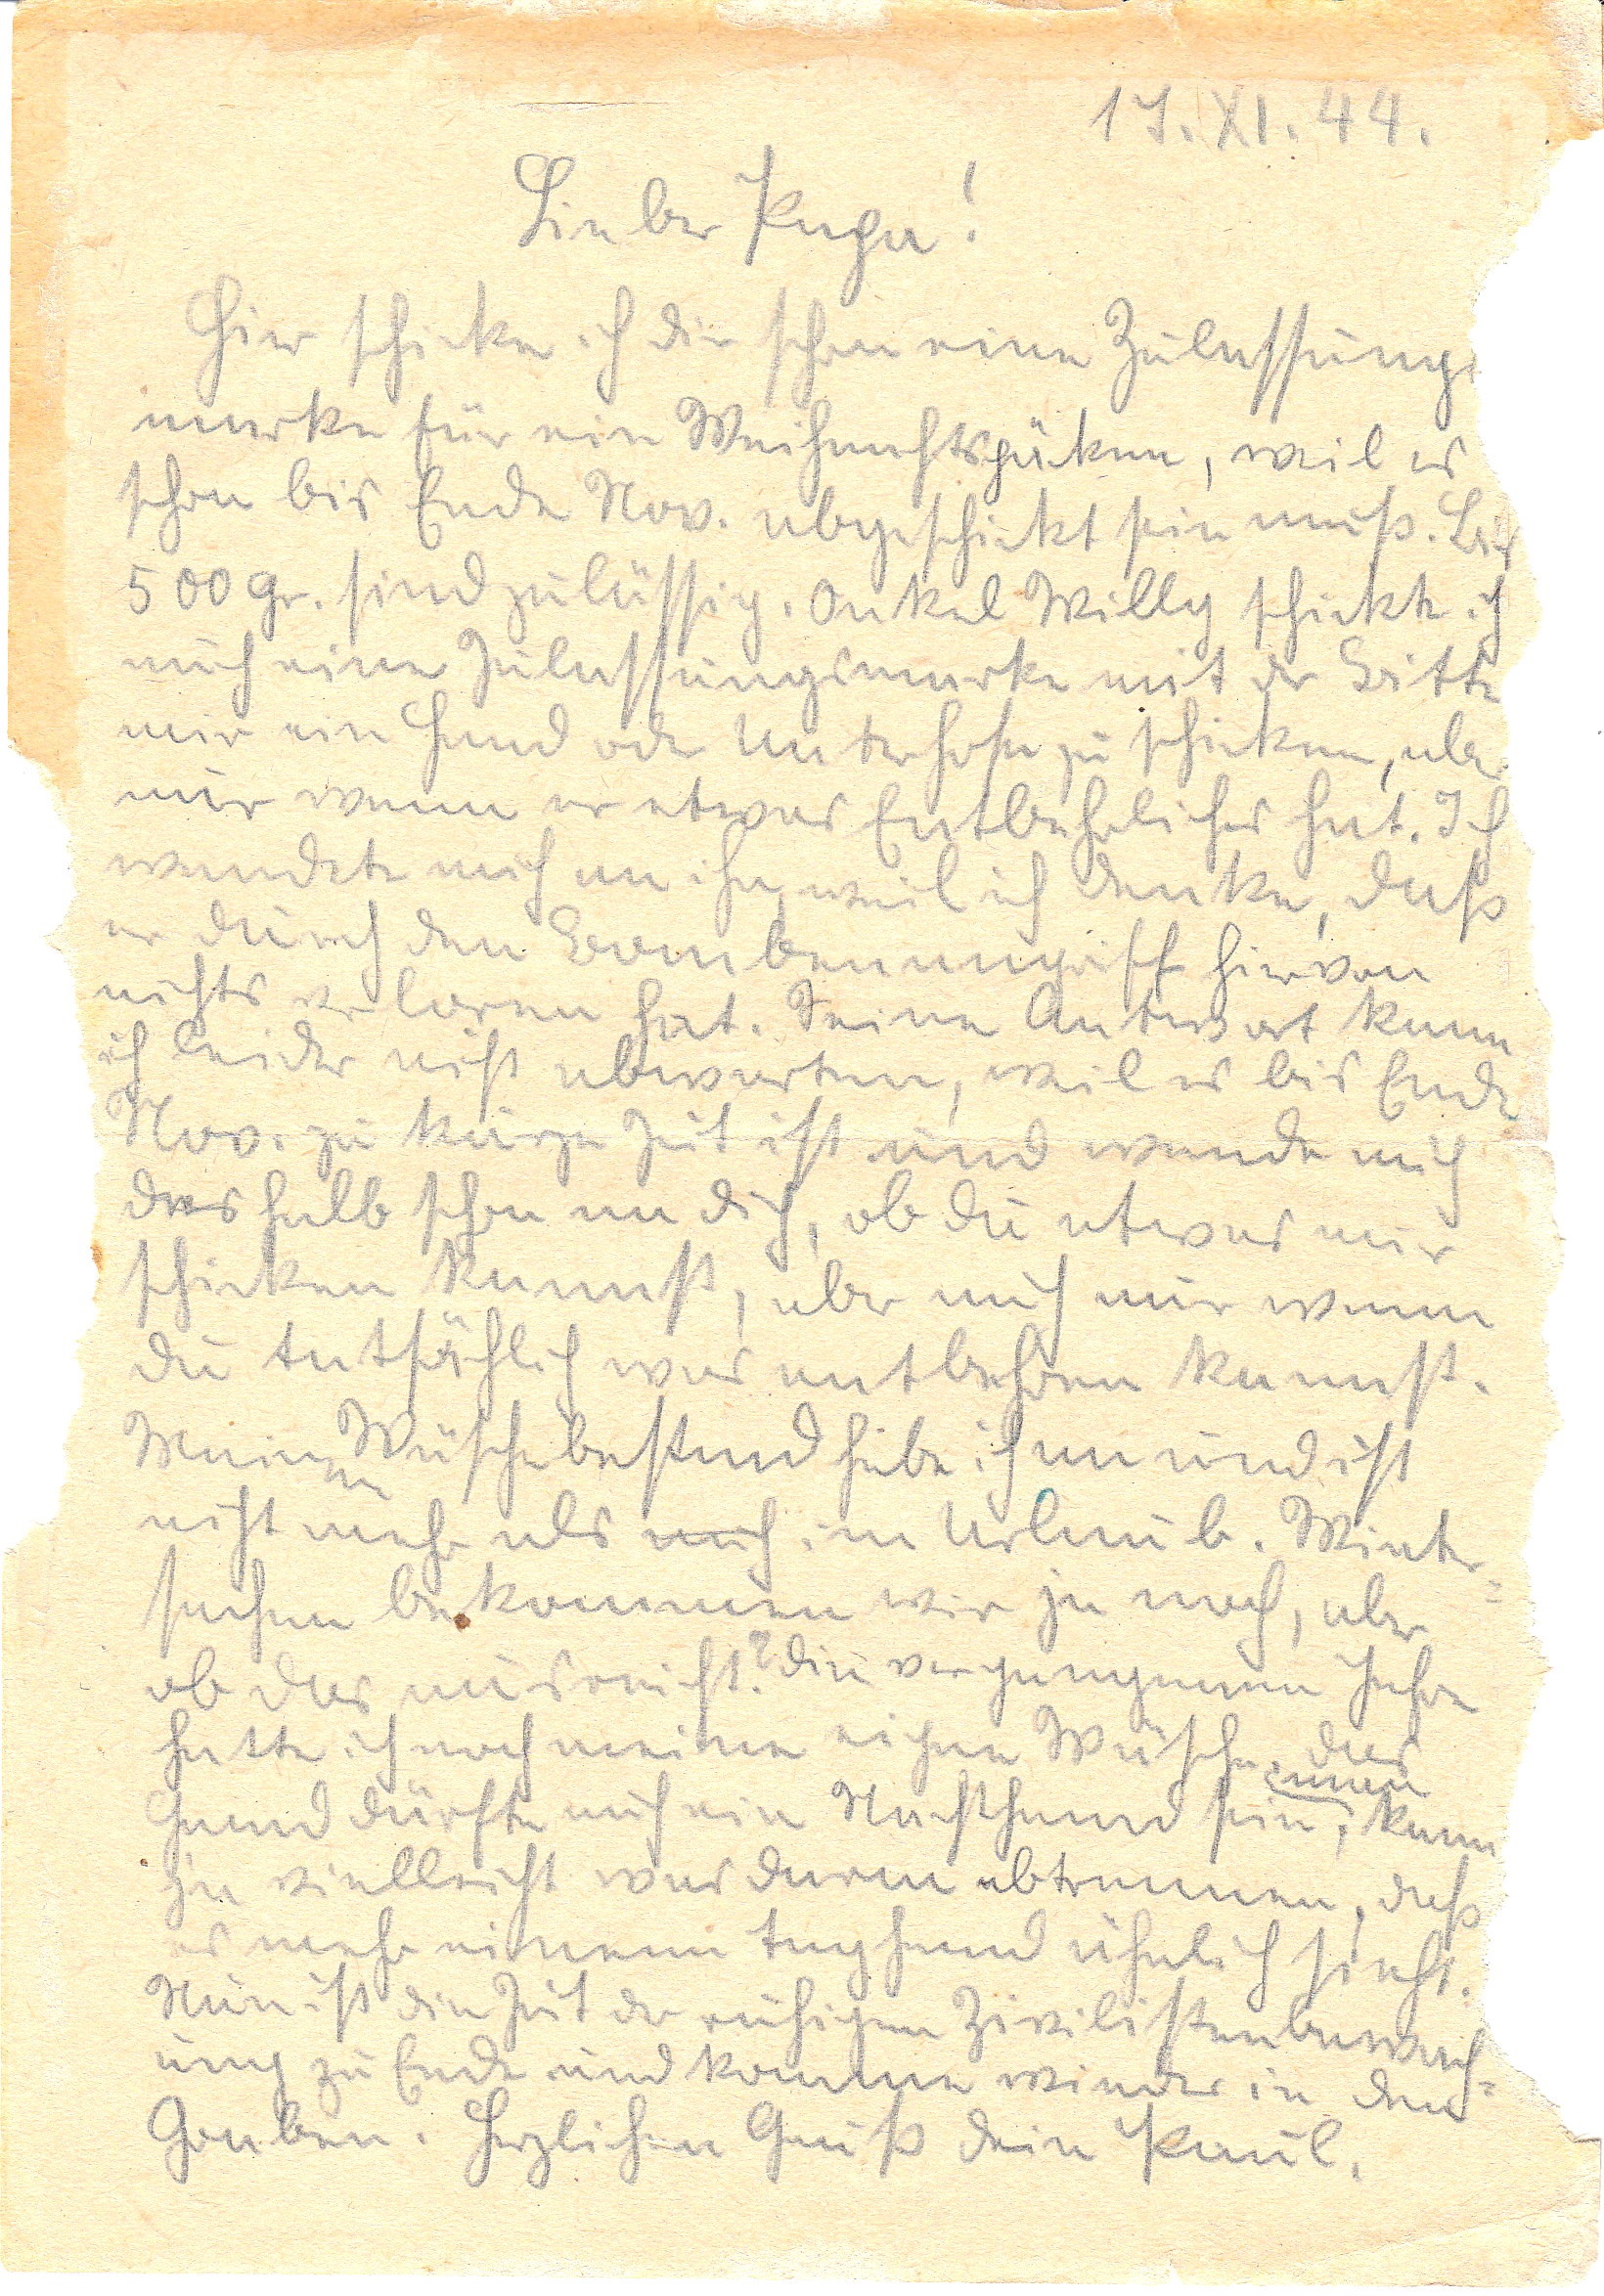 17. XI. 44.
Lieber Papa!
Hier schicke ich dir schon eine Zulassungs
marke für ein Weihnachtspäken, weil es
schon bis Ende Nov. abgeschickt sein muß. Bis
500 gr. sind zulässig. Onkel Willy schickte ich
auch eine Zulassungsmarke mit der Bitte
mir ein Hemd oder Unterhose zu schicken, aber
nur wenn er etwas Entbehrliches hat. Ich
wendete mich an ihn, weil ich denke, daß
er durch den Bombenangriff hiervon
nichts verloren hat. Seine Antwort kann
ich leider nicht abwarten, weil es bis Ende
Nov. zu kurze Zeit ist und wende mich
deshalb schon an dich, ob du etwas mir
schicken kannst, aber auch nur wenn
du tatsächlich was entbehren kannst.
Meinen Wäschebestand habe ich an und ist
nicht mehr als auch im Urlaub. Winter-
sachen bekommen wir ja noch, aber
ob das ausreicht? Die vergangenen Jahre
hatte ich noch meine eigene Wäsche. Das
Hemd dürfte auch ein Nachthemd sein, man kann
ja vielleicht was daran abtrennen, daß
es mehr einem Taghemd ähnlich sieht.
Nun ist die Zeit der ruhigen Zivilistenbewach-
ung zu Ende und komme wieder in den
Graben. Herzlichen Gruß dein Paul.